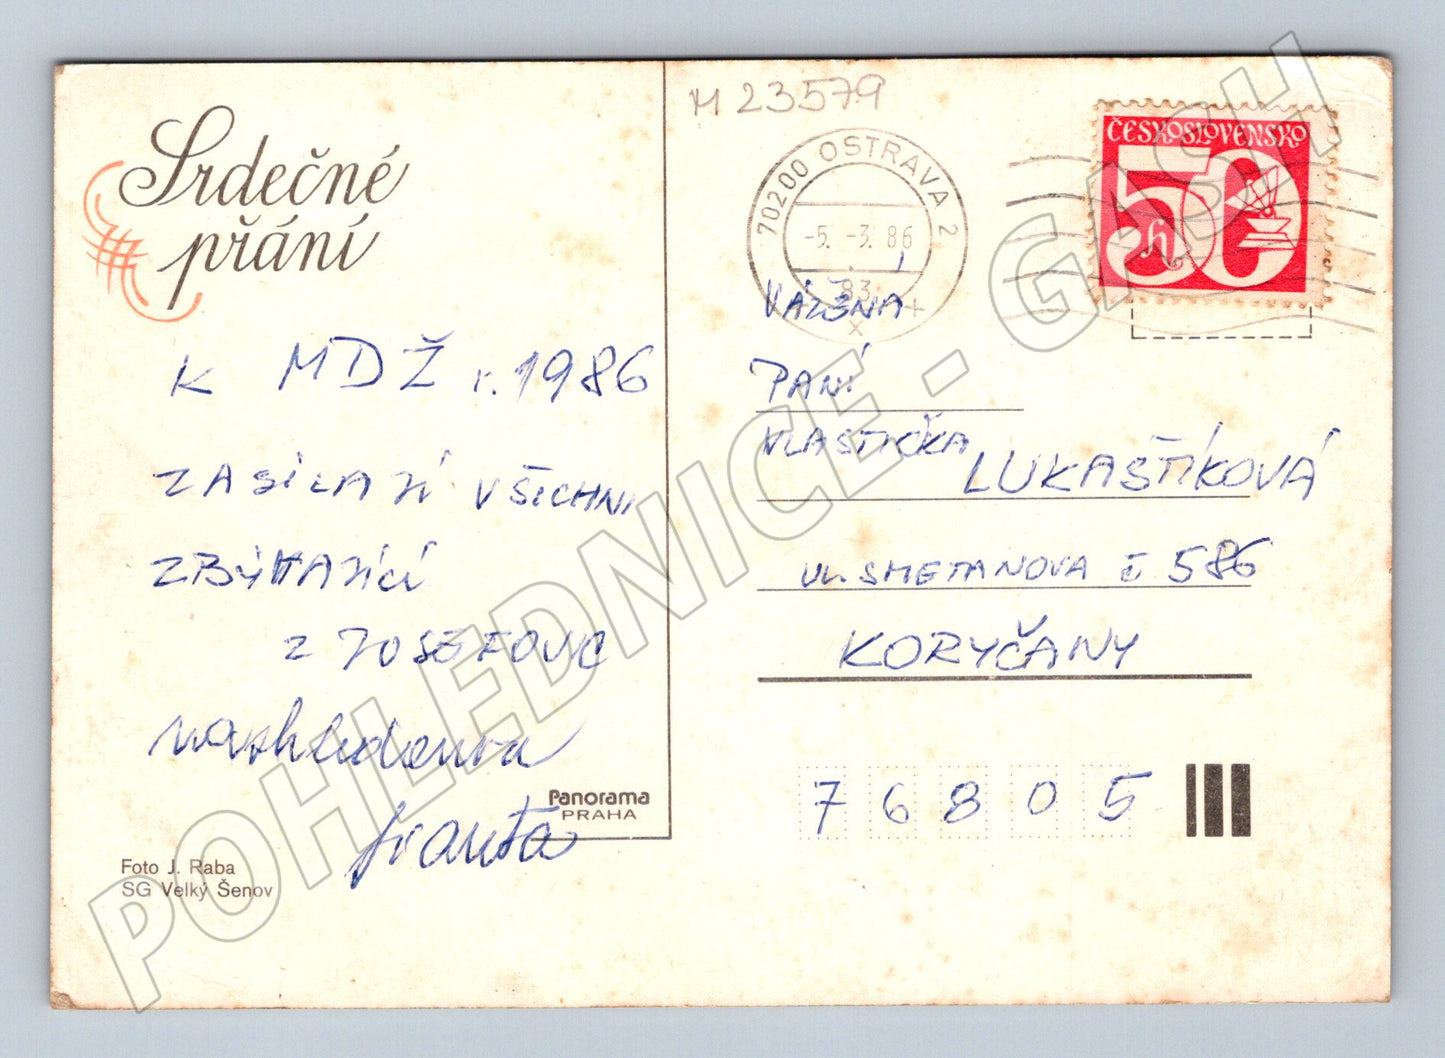 M 23579
Srdečné
přání
K MDŽ r. 1986
ZASÍLAJÍ VŠICHNI
ZBÝVAJÍCÍ
Z JOSEFOVIC
nashledanou
Franta
Panorama
PRAHA
Foto J. Raba
SG Velký Šenov
70200 OSTRAVA 2
-5. -3. 86
83
x
ČESKOSLOVENSKO
50
h
VÁŽENÁ
PANÍ
VLASTIČKA
LUKAŠTÍKOVÁ
UL. SMETANOVA č 586
KORYČANY
76805
POHLEDNICE - GASH